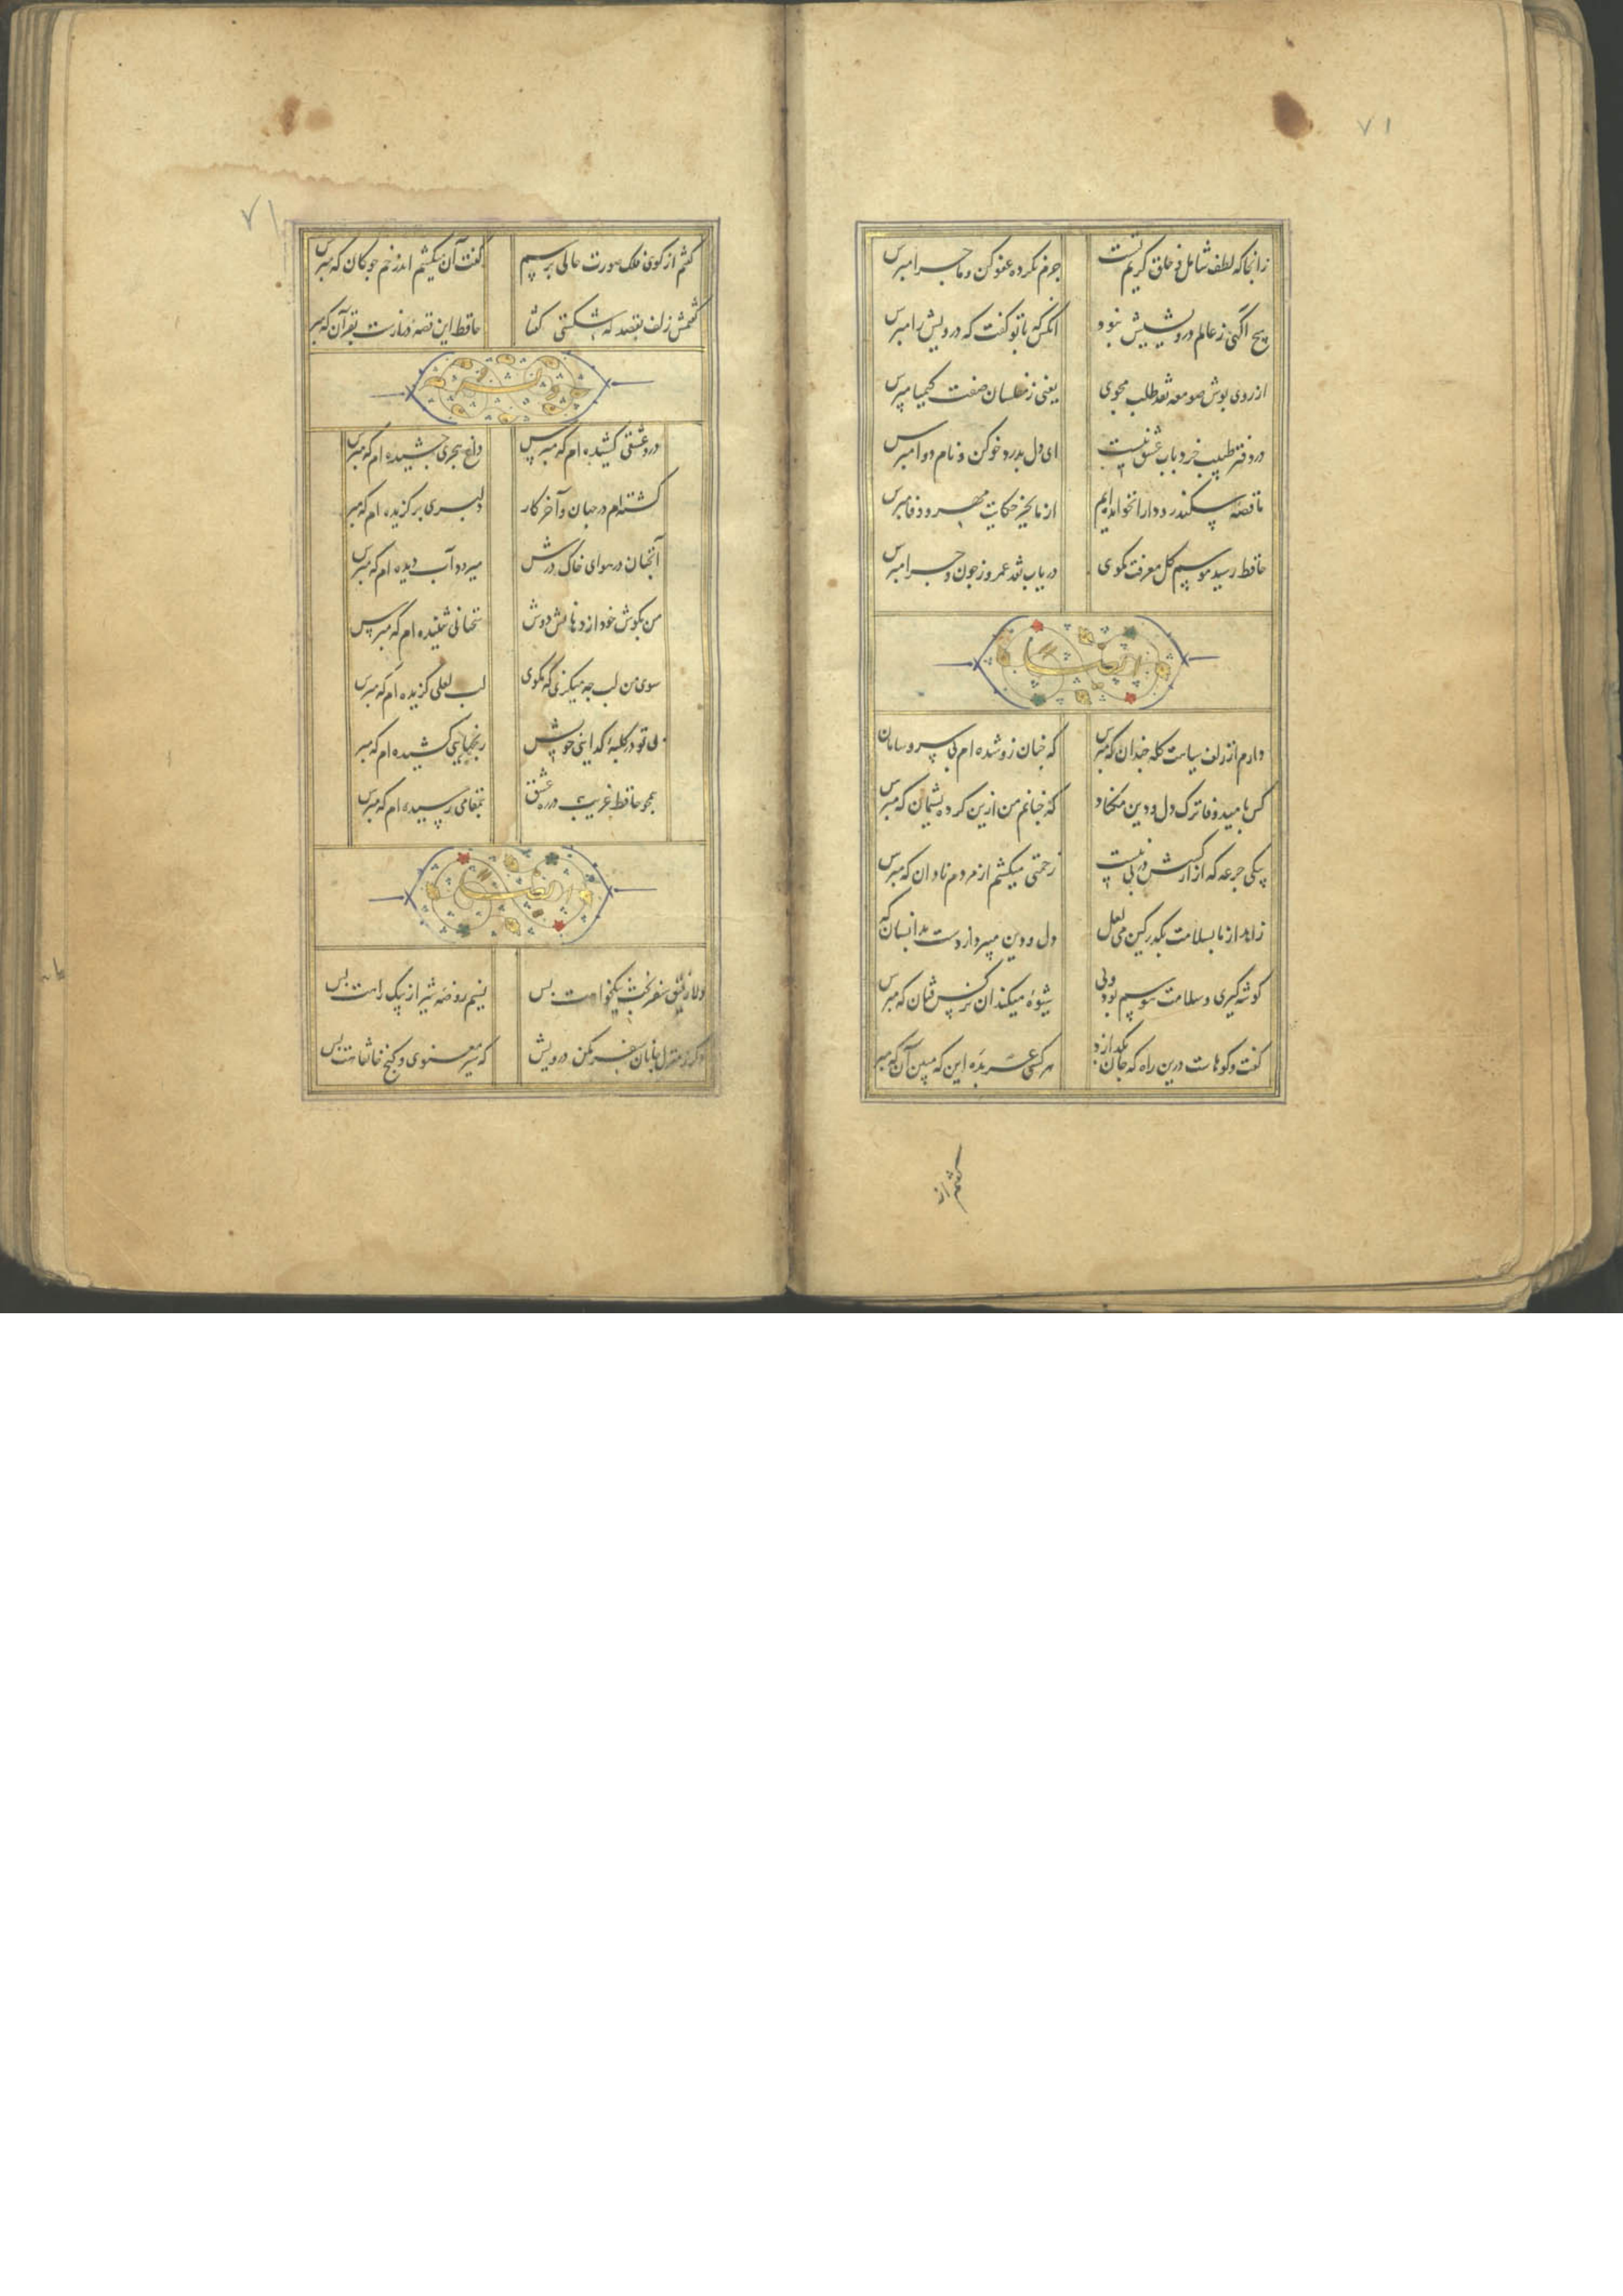 ۷۱
زانجا که لطف شامل و خلق کریم تست جرم نکرده عفو کن و ماجرا مپرس
هیچ آگهی ز عالم درویشیش نبود آنکس که با تو گفت که درویش را مپرس
از روی پوش صومعه نقد طلب مجوی یعنی ز مفلسان صفت کیمیا مپرس
در دفتر طبیب خرد باب عشق نیست ای دل بدرد خو کن و نام دوا مپرس
ما قصه سکندر و دارا نخوانده‌ایم از ما بجز حکایت مهر و وفا مپرس
حافظ رسید موسم گل معرفت مگوی دریاب نقد عمر و ز چون و چرا مپرس
ایضا
دارم از زلف سیاهت گله چندان که مپرس که چنان زو شده‌ام بی سر و سامان
کس بامید وفا ترک دل و دین مکناد که چنانم من ازین کرده پشیمان که مپرس
بیکی جرعه که آزار کسش در پی نیست زحمتی میکشم از مردم نادان که مپرس
زاهد از ما بسلامت بگذر کین می لعل دل و دین میبرد از دست بدانسان که
گوشه گیری و سلامت هوسم بود ولی شیوهٔ میکند آن نرگس فتان که مپرس
گفت و گوهاست درین راه که جان بگدازد هر کسی عربده این که مبین آن که مپرس
گفتم از
۷۱
گفتم از گوی فلک صورت حالی پرسم گفت آن میکشم اندر خم چوگان که مپرس
گفتمش زلف بقصد که شکستی گفتا حافظ این قصه درازست بقرآن که مپرس
درد عشقی کشیده‌ام که مپرس داغ هجری چشیده‌ام که مپرس
گشته‌ام در جهان و آخر کار دلبری برگزیده‌ام که مپرس
آنچنان در هوای خاک درش میرود آب دیده‌ام که مپرس
من بگوش خود از دهانش دوش سخنانی شنیده‌ام که مپرس
سوی من لب چه میگزی که مگوی لب لعلی گزیده‌ام که مپرس
بی تو در کلبهٔ گدایی خویش رنجهایی کشیده‌ام که مپرس
همچو حافظ غریب در ره عشق بمقامی رسیده‌ام که مپرس
ایضا
دلا رفیق سفر بخت نیکخواهت بس نسیم روضه شیراز پیک راهت بس
دگر ز منزل جانان سفر مکن درویش که سیر معنوی و کنج خانقاهت بس